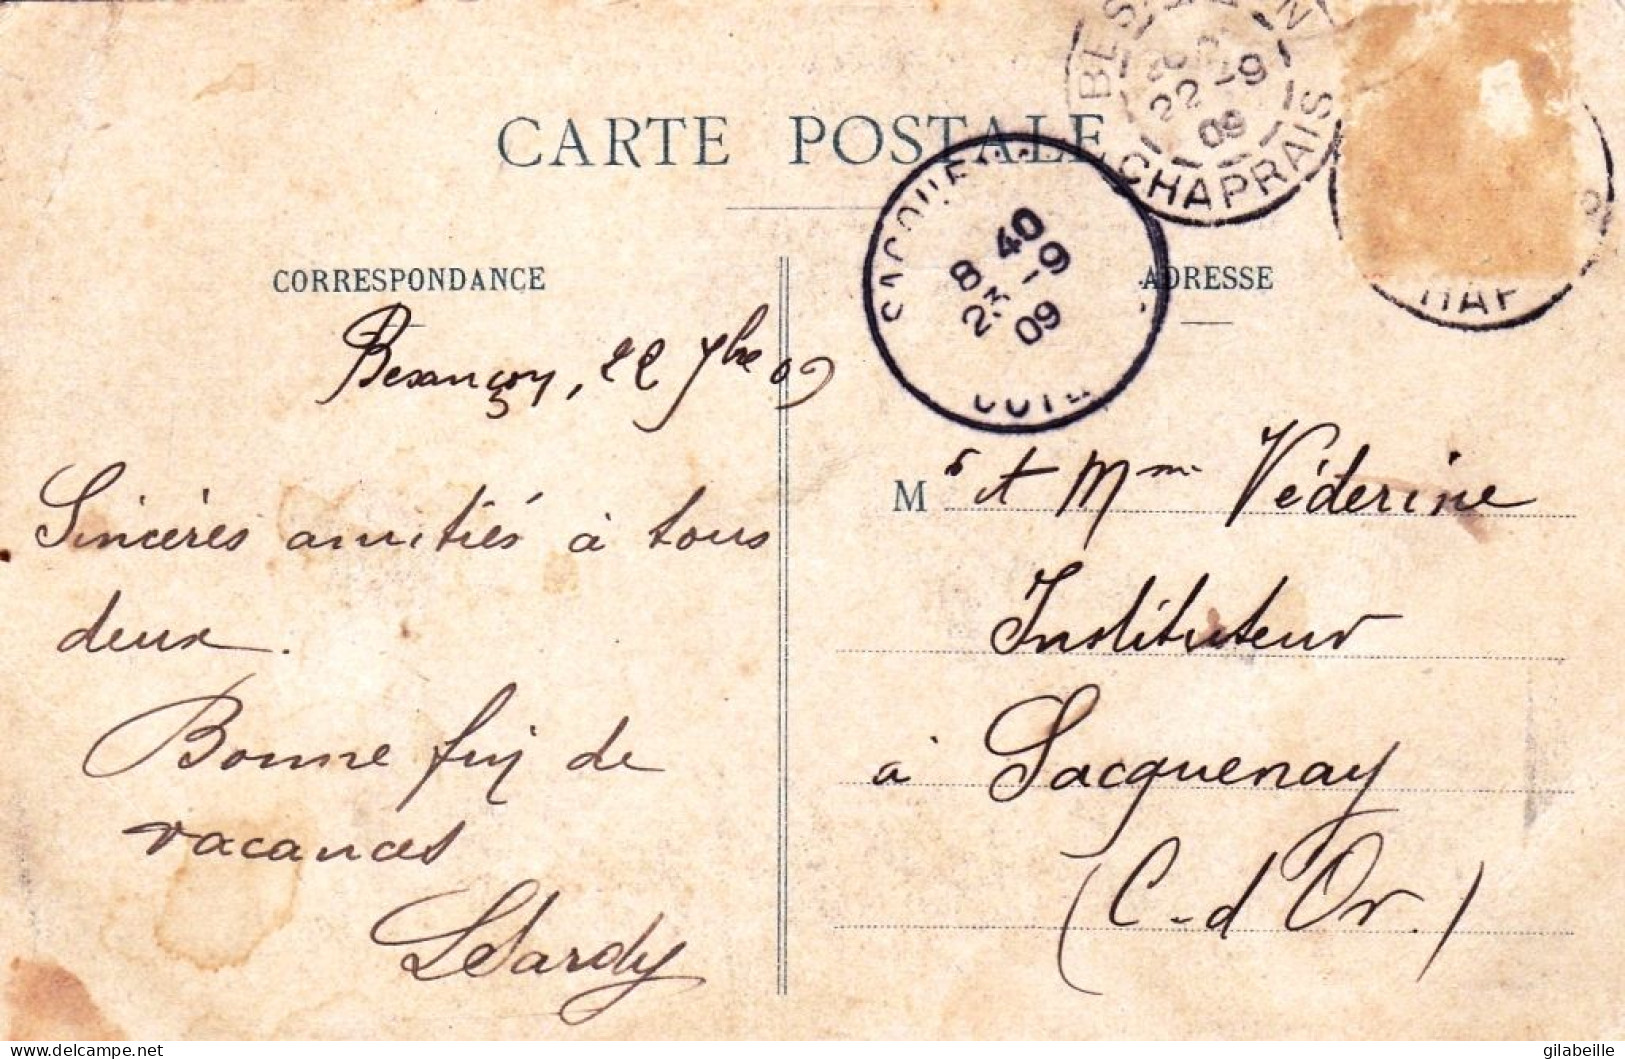 CARTE POSTALE
CORRESPONDANCE
ADRESSE
Besançon, 22 7bre 09
Sincères amitiés à tous
deux.
Bonne fin de
vacances
M r et Mme Véderine
Instituteur
à Sacquenay
(C-d'Or.)
CHAPRAIS
22 -9
09
SACQUE
8 40
23 -9
09
HAP
delcampe.net
gilabeille